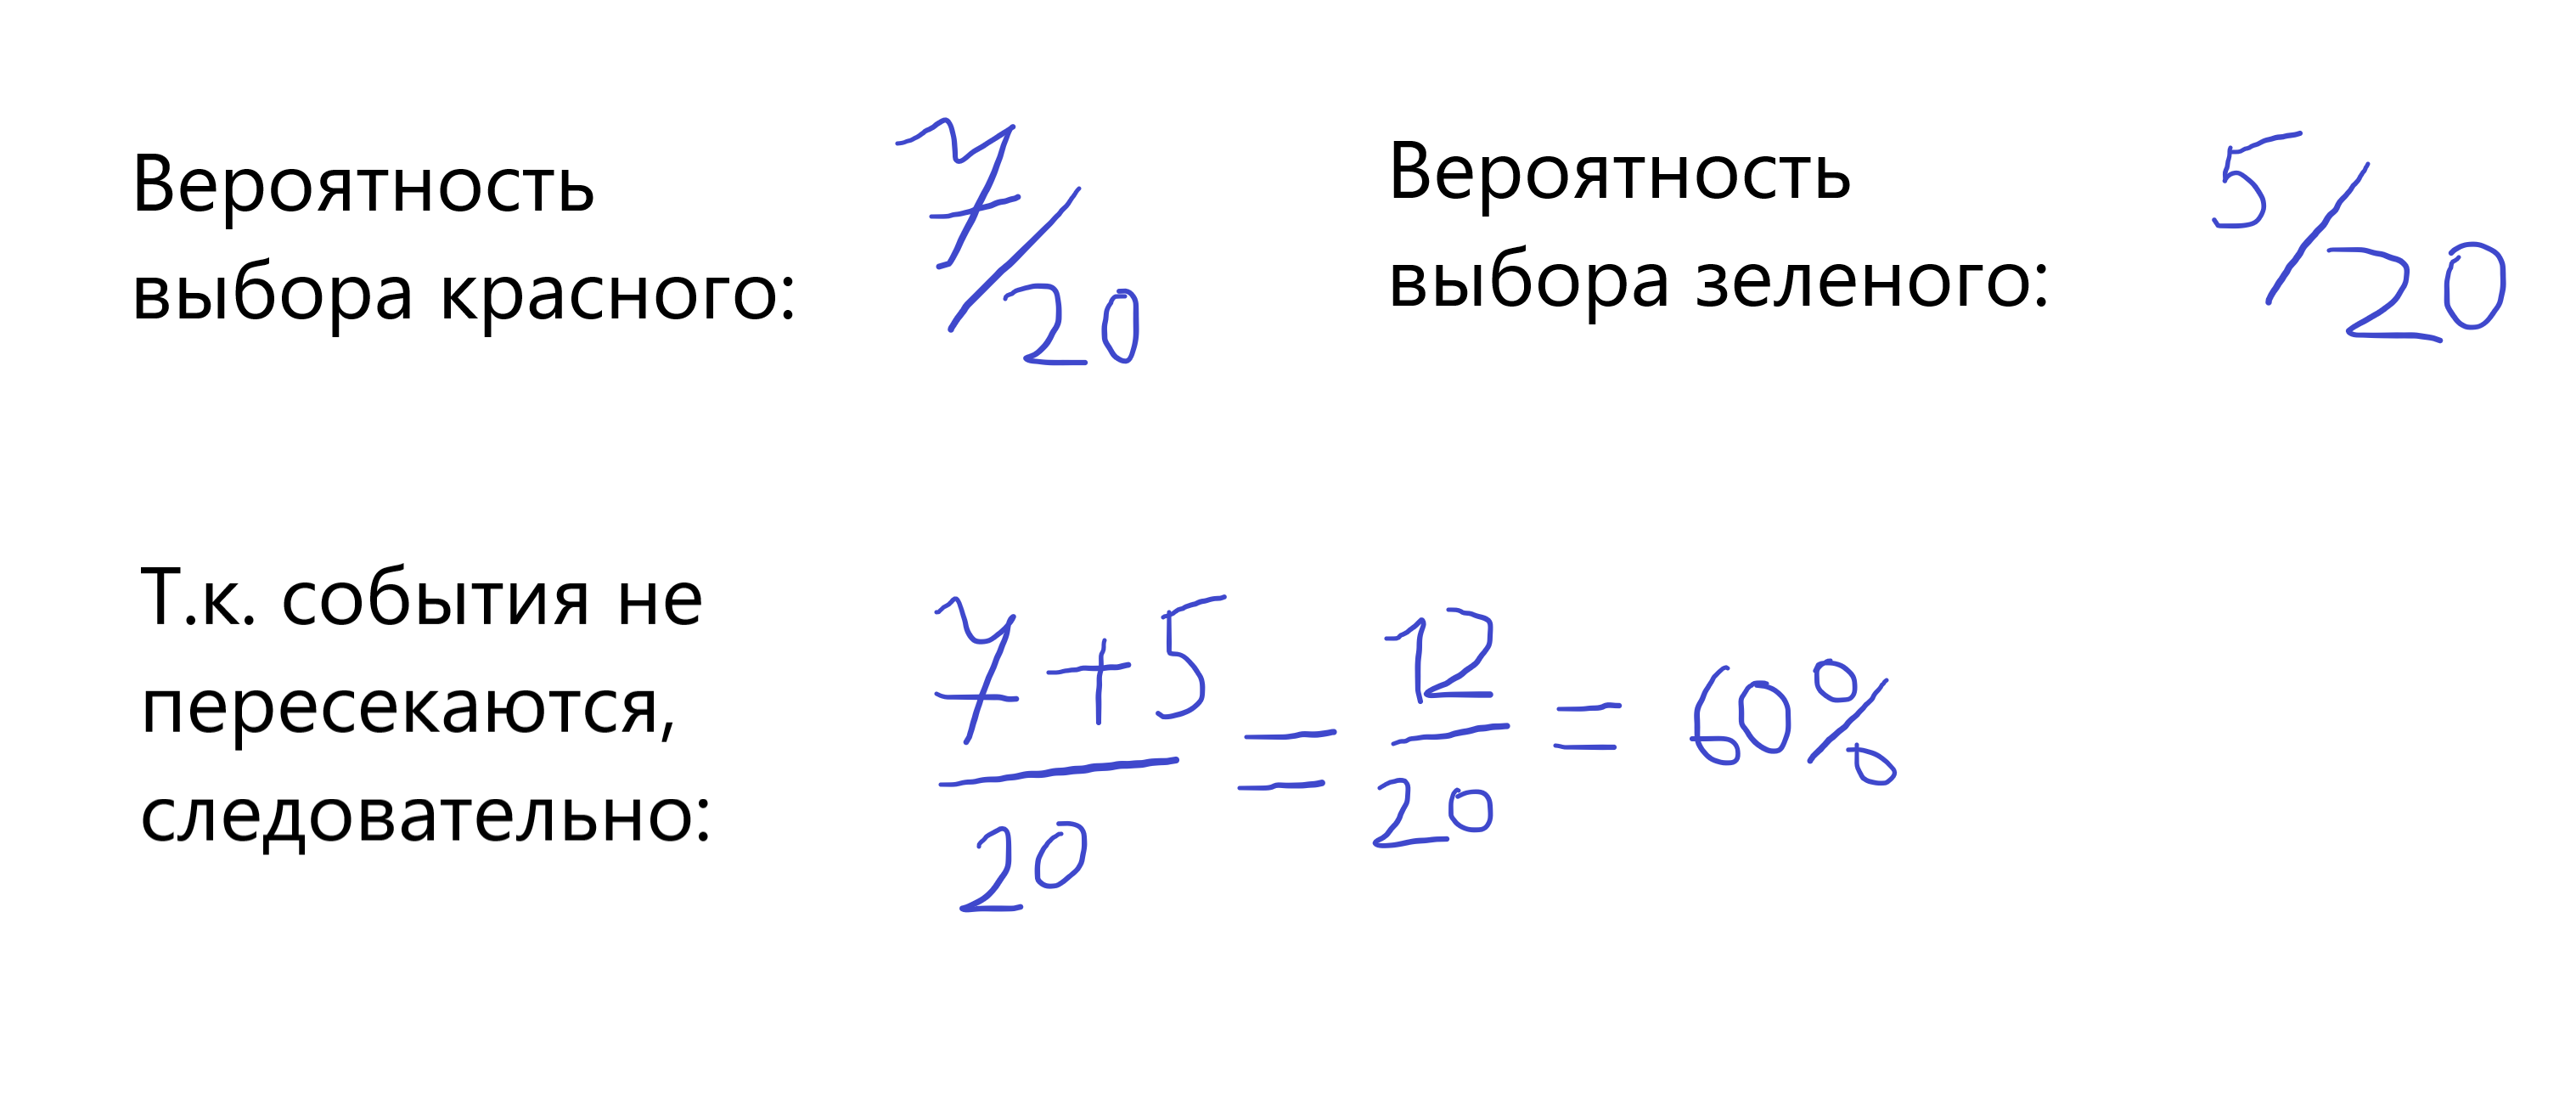 Вероятность
выбора красного: 7/20
Вероятность
выбора зеленого: 5/20
Т.к. события не
пересекаются,
следовательно:
7+5/20 = 12/20 = 60%